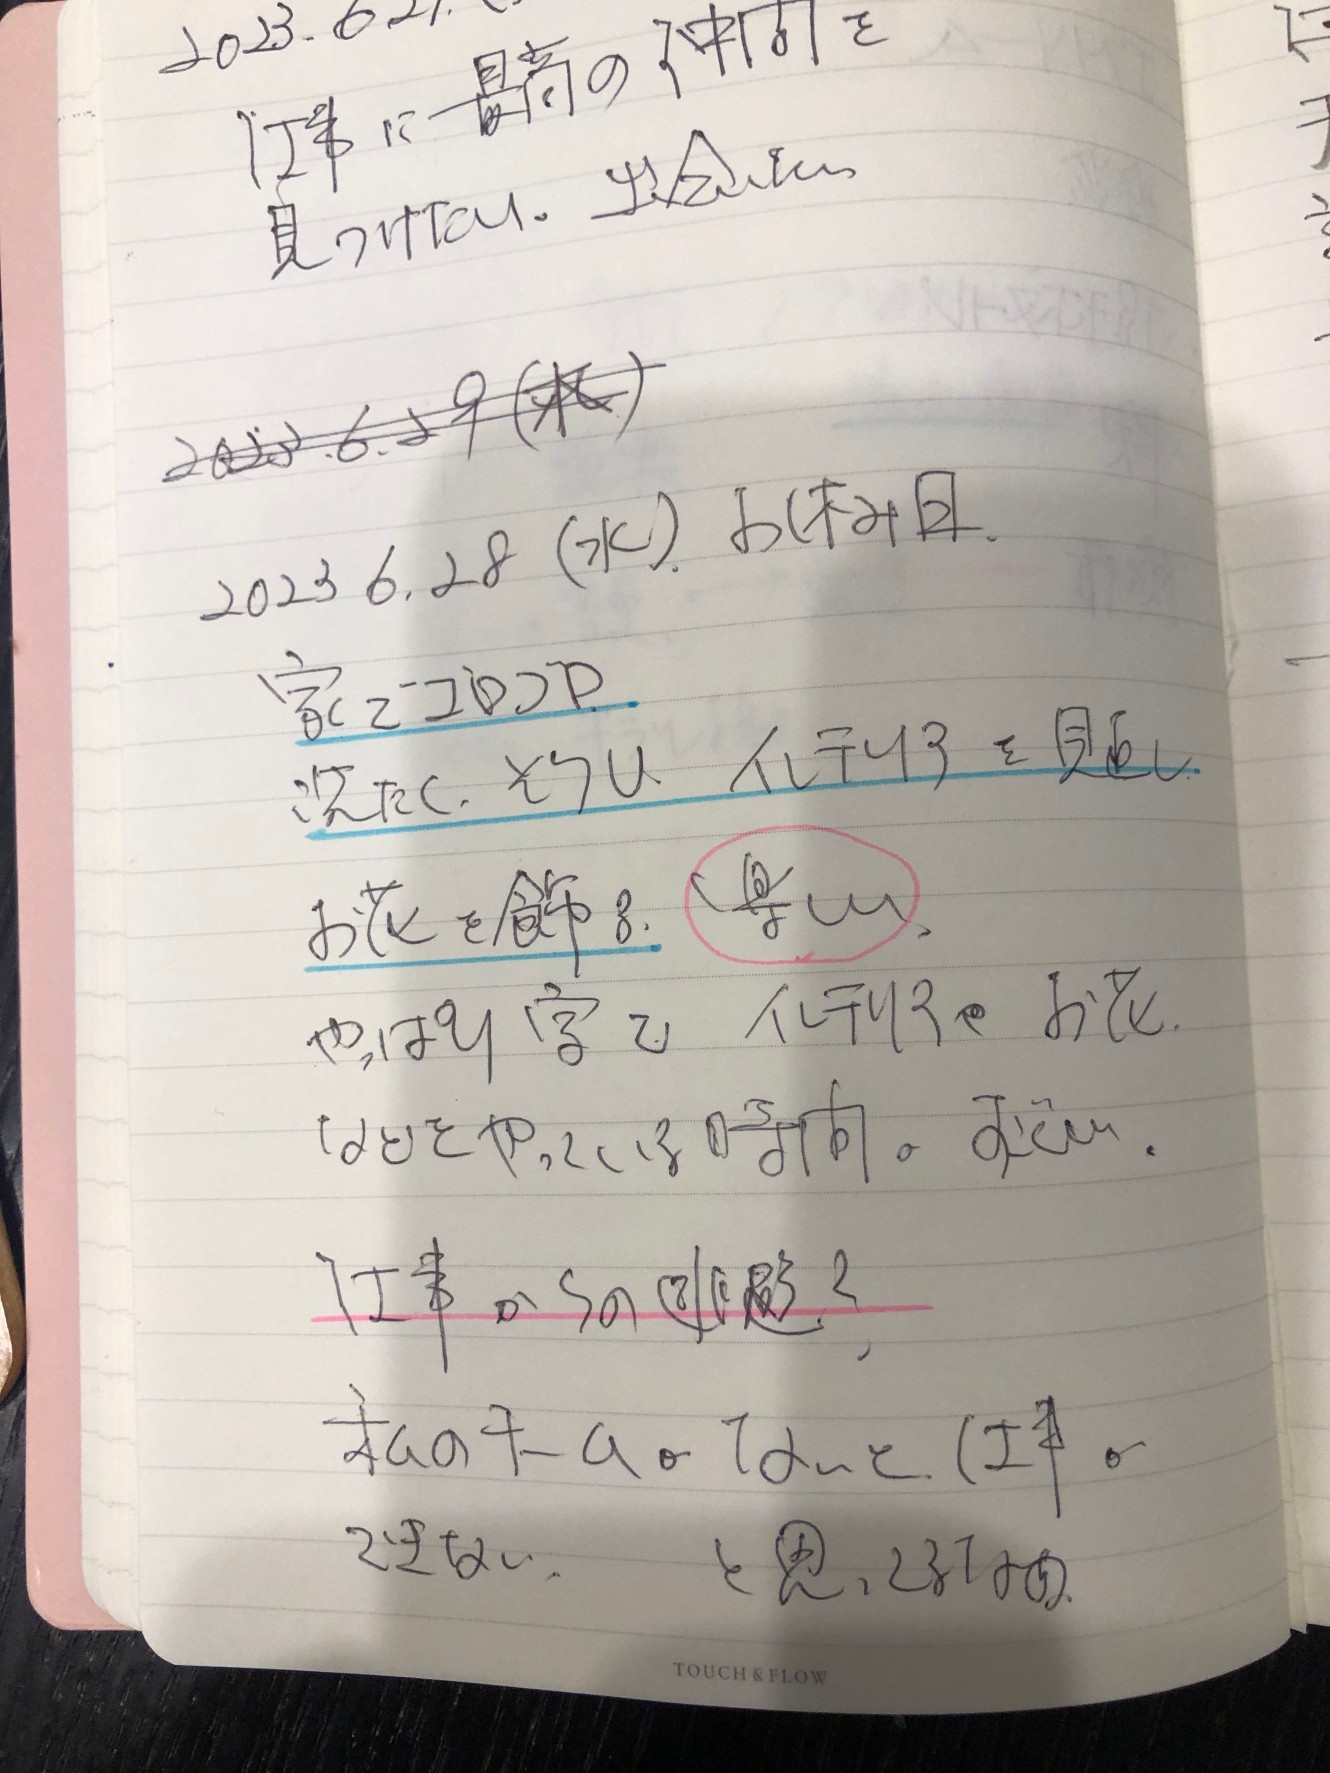 2023.6.27.(
仕事に最高の仲間を
見つけたい。出会いたい
2023.6.29(水)
2023 6.28 (水). お休み日.
家でゴロゴロ.
洗たく. そうじ インテリアを見直し
お花を飾る. 楽しい、
やっぱり家で インテリアや お花.
などをやっている時間が
仕事からの
私のチームが ないと. 仕事が
できない. と思ってる
TOUCH & FLOW